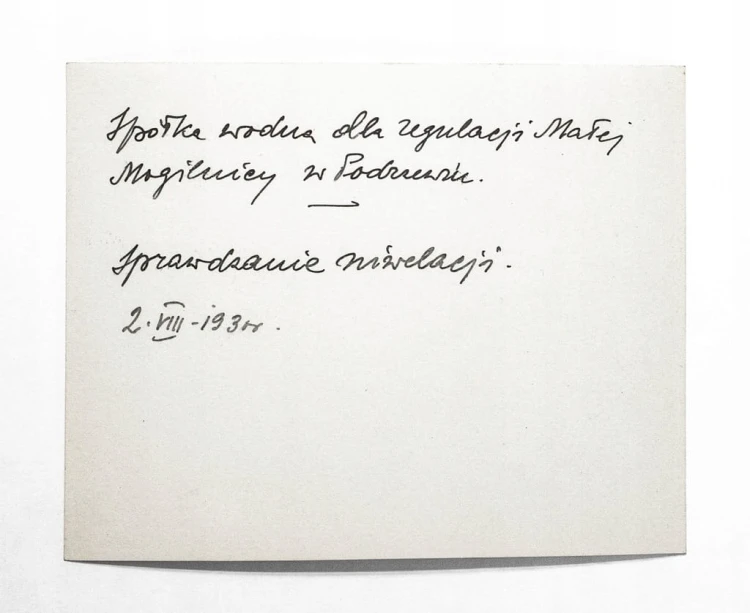 Spółka wodna dla regulacji Małej
Mogilnicy w Podrzewiu.
Sprawdzanie niwelacji.
2.VIII-193